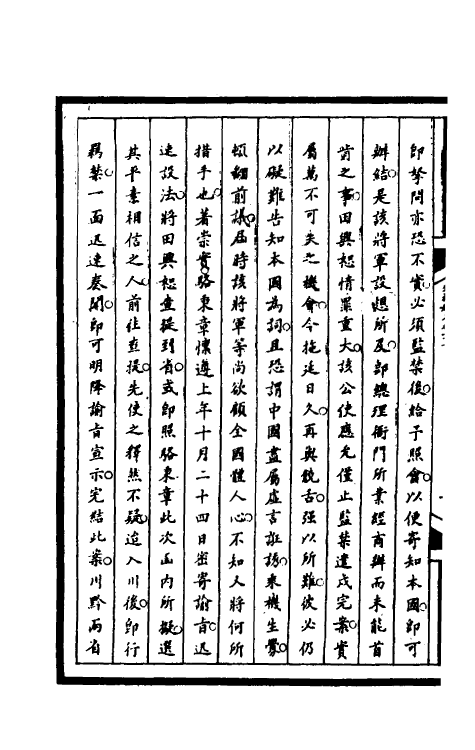 即拏問亦恐不實必須監禁後給予照會以便寄知本國即可
辦結是該將軍設想所及即總理衙門所業經商辦而未能首
肯之事田興恕情罪重大該公使應允僅止監禁遣戍完案實
屬萬不可失之機會今拖延日久再與饒舌强以所難彼必仍
以礙難告知本國為詞且恐謂中國盡屬虛言誑謗乘機生釁
頓翻前議屆時該將軍等尚欲顧全國體人心不知又將何所
措手也著崇實駱秉章懍遵上年十月二十四日密寄諭旨迅
速設法將田興恕查提到省或即照駱秉章此次函內所擬選
其平素相信之人前往查提先使之釋然不疑迨入川後即行
羈禁一面迅速奏聞即可明降諭旨宣示完結此案川黔兩省